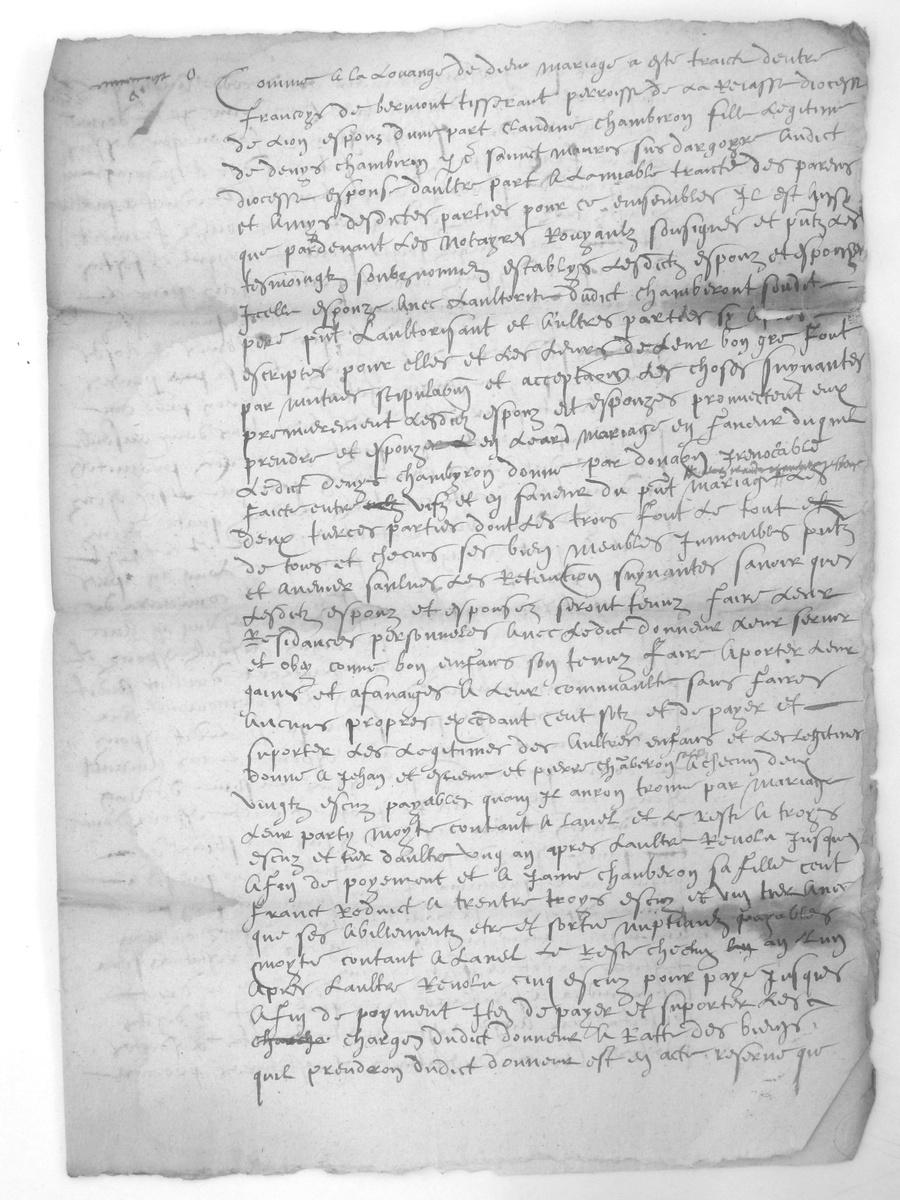 Comme a la Louange de dieu mariage a este traicte dentre
francoys de bermont tisserant perroisse de La Reiasse diocesse
de Lion espoux dune part Claudine chambiron fille Legitime
de denys chambiron sainct maures sus dargoyre audict
diocesse espouse daultre part a Lamiable traicte des parens
et amys desdictes parties pour ce ensembles Il est ainsy
que pardevant Les notayres Royaulx soubsignes et Les
tesmoingtz soubznommes establys Lesdictz espoux et espouze
Icelle espouze avec Lauthorite dudict chamberont sondict
pere Laultorisant et aultres parties sy apres
escriptes pour elles et Les Leurs de Leur bon gre font
par mutues stipulation et acceptation Les choses suyvantes
premierement Lesdictz espoux et espouzes promectent eulx
prendre et espouzer en Leard mariage en faveur duquel
Ledict denys chambyron donne par donaon Irevocable
faicte entre vifz et en faveur du pnt mariage Les
deux tierces parties dont Les trois font Le tout
de tous et checuns ses bien meubles Inmeubles pntz
et avenir saulves Les Retention suyvantes savoir que
Lesdictz espoux et espouses seront tenuz faire Leur
Residances personneles avec Ledict donneur Leur servir
et obey comme bon enfans son tenuz faire aporter Leur
gaines et afanaiges a Leur communaulte sans faires
aucuns propres excedant cent solz et de payer et
suporter Les Legitimes des aultres enfans et Les Legitimes
donne a Jehan et estiene et pierre chamberon a checun deux
vingtz escuz payables quant Il auron trouve par mariage
Leur party moyte contant a Lanel et Le reste a troys
escuz et tier daultre ung an apres Laultre Revolu Jusques
a fin de poyement et a Jame chamberon sa fille cent
franct Reduict a trentre troys escuz et un tier avec
que ses abillementz etre et sortie nuptiaulx payables
moyte contant a Lanel Le Reste checun an Lun
apres Laultre Revolu cinq escuz pour paye Jusques
a fin de poyment Item de payer et suporter Les
charges dudict donneur a Ratte des biens
quil prendron dudict donneur est en acte reserve que